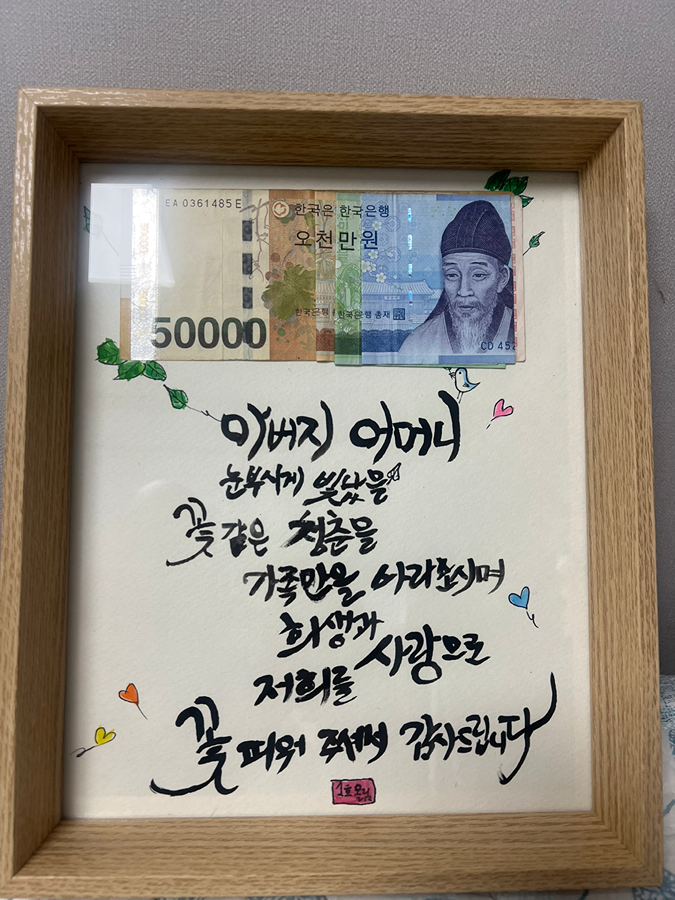 EA 0361485 E
한국은 한국은행
오천만원
한국은행 한국은행 총재
50000
CD 452
아버지 어머니
눈부시게 빛났을
꽃같은 청춘을
가족만을 아라호시며
희생과
사랑으로
저희를
꽃 피워 주셔서 감사드립니다